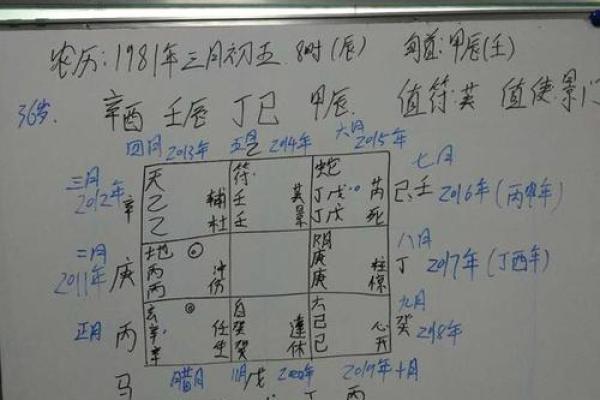 农历:1981年三月初五 8时(辰) 旬首:甲辰(壬)
36岁. 辛酉 壬辰 丁巳 甲辰. 值符:英 值使:景门
四月2013年 五月2014年 六月2015年
三月2012年 辛 天 乙 乙 辅 杜 符 壬 壬 英 景 蛇 丁戊 丁戊 芮 死 己壬 七月 2016年(丙申年)
二月2011年 庚 地 丙 丙 冲 伤 阴 庚 庚 柱 惊 丁 八月 2017年(丁酉年)
正月 丙 玄 辛 辛 任 生 白 癸 癸 蓬 休 六 己 己 心 开 癸 九月 2018年
马 腊月 11月 戊 2020年 2019年十月